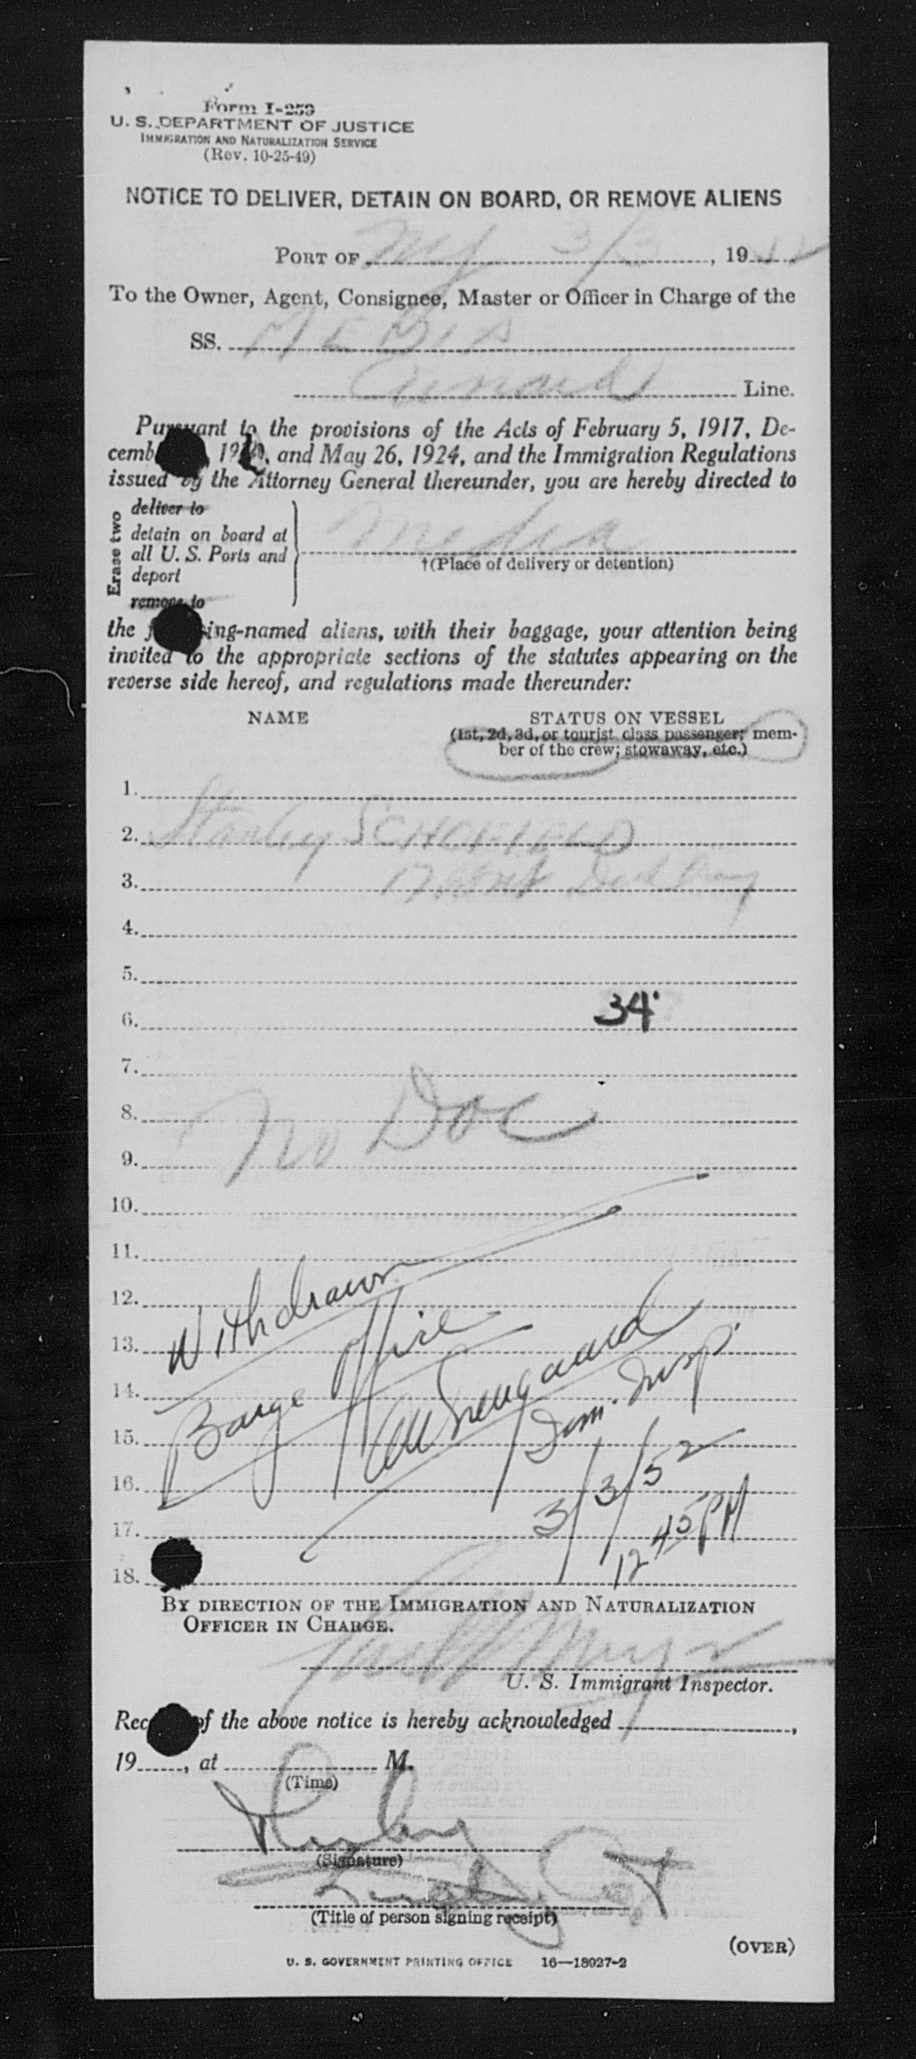 Form I-259
U. S. DEPARTMENT OF JUSTICE
IMMIGRATION AND NATURALIZATION SERVICE
(Rev. 10-25-49)
NOTICE TO DELIVER, DETAIN ON BOARD, OR REMOVE ALIENS
PORT OF NY 3/3, 1952
To the Owner, Agent, Consignee, Master or Officer in Charge of the
SS. MEDIA
Cunard Line.
Pursuant to the provisions of the Acts of February 5, 1917, De-
cemb 19, and May 26, 1924, and the Immigration Regulations
issued by the Attorney General thereunder, you are hereby directed to
Erase two
deliver to
detain on board at
all U. S. Ports and
deport
remove to
Media
†(Place of delivery or detention)
the f ing-named aliens, with their baggage, your attention being
invited to the appropriate sections of the statutes appearing on the
reverse side hereof, and regulations made thereunder:
NAME STATUS ON VESSEL
(1st, 2d, 3d, or tourist class passenger; mem-
ber of the crew; stowaway, etc.)
1.
2. Stanley SCHOFIELD
3.
4.
5.
6. 34
7.
8. No Doc
9.
10.
11.
12. Withdrawn
13. Barge Office
14.
15. Insp.
16. 3/3/52
17. 12 45 PM
18.
BY DIRECTION OF THE IMMIGRATION AND NATURALIZATION
OFFICER IN CHARGE.
U. S. Immigrant Inspector.
Rec of the above notice is hereby acknowledged ,
19 , at M.
(Time)
(Signature)
(Title of person signing receipt)
(OVER)
U. S. GOVERNMENT PRINTING OFFICE 16—18027-2